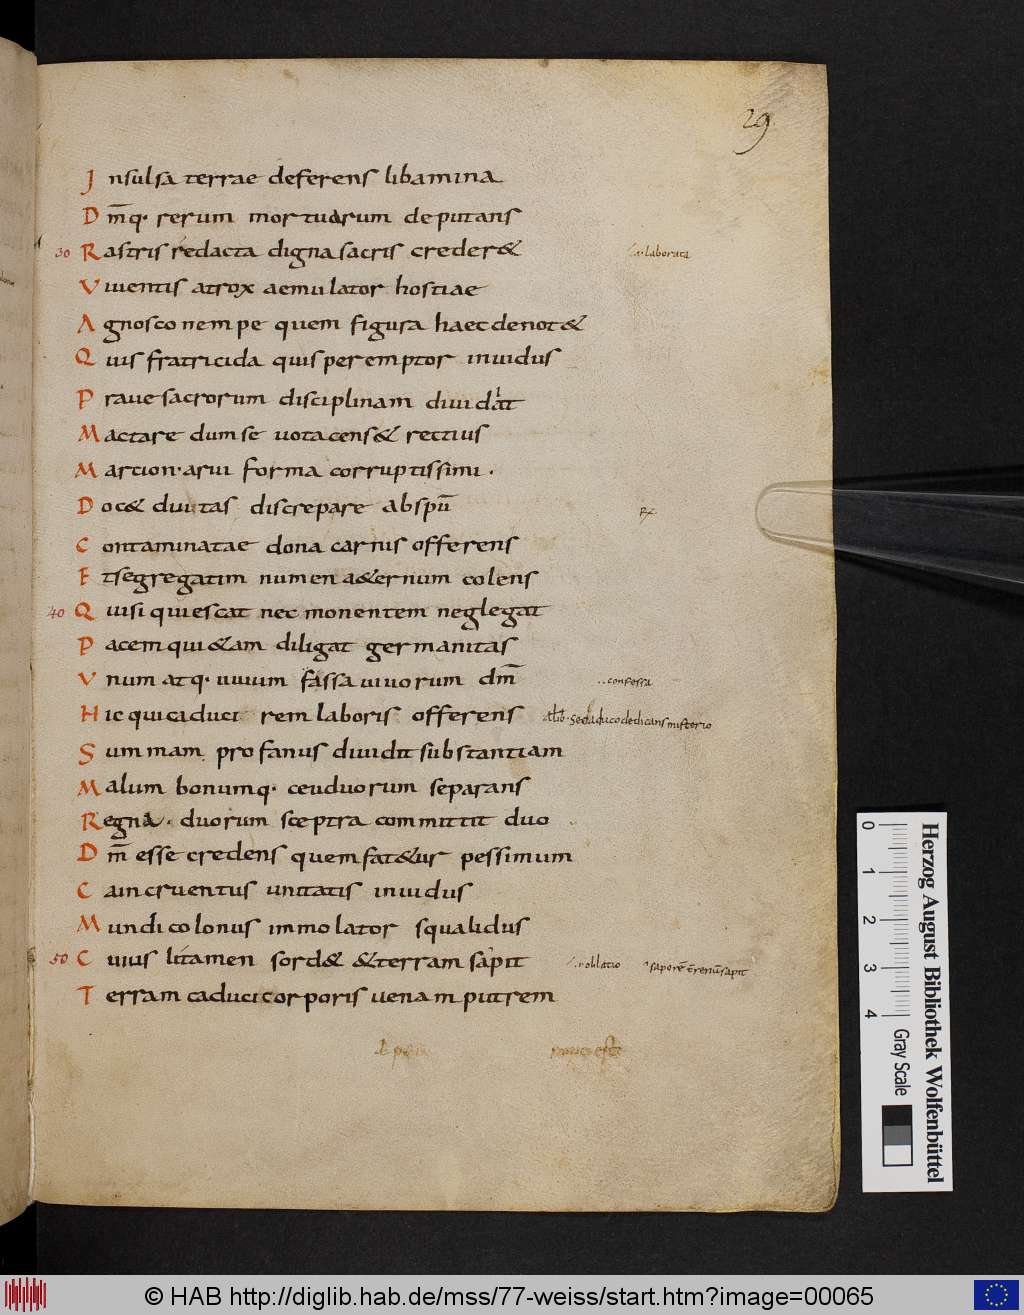 29
Insulsa terrae deferens libamina
Dm̄q· rerum mortuarum deputans
30 Rastris redacta digna sacris creder&
·laborata
Viventis atrox aemulator hostiae
Agnosco nempe quem figura haec denot&
Quis fratricida quis peremptor inuidus
Praue sacrorum disciplinam diuidat
Mactare dum se uota cens& rectius
Marcion·arui forma corruptissimi·
Doc& duitas discrepare abspū
Contaminatae dona carnis offerens
Etsegregatim numen a&ernum colens
40 Quisi quiescat nec monentem neglegat
Pacem qui&am diligat germanitas
Vnum atq· uiuum fassa uiuorum dm̄
··confessa
Hic qui caduci rem laboris offerens
Summam profanus diuidit substantiam
Malum bonumq· ceuduorum separans
Regna· duorum sceptra committit duo
Dm̄ esse credens quem fat&ur pessimum
Cain cruentus unitatis inuidus
Mundi colonus immolator squalidus
50 Cuius litamen sord& &terram sapit
oblatio
Terram caduci corporis uenam putrem
0 1 2 3 4
Gray Scale
Herzog August Bibliothek Wolfenbüttel
© HAB http://diglib.hab.de/mss/77-weiss/start.htm?image=00065